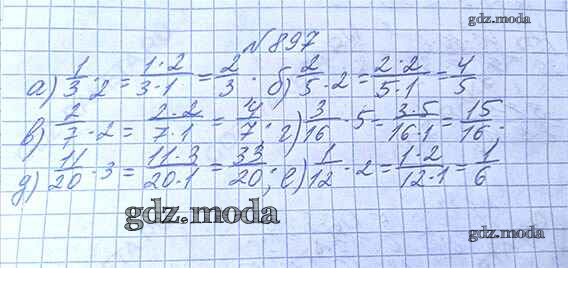 gdz.moda
№897
а) 1/3 · 2 = 1·2/3·1 = 2/3. б) 2/5 · 2 = 2·2/5·1 = 4/5
в) 2/7 · 2 = 2·2/7·1 = 4/7; г) 3/16 · 5 = 3·5/16·1 = 15/16.
д) 11/20 · 3 = 11·3/20·1 = 33/20; е) 1/12 · 2 = 1·2/12·1 = 1/6
gdz.moda
gdz.moda